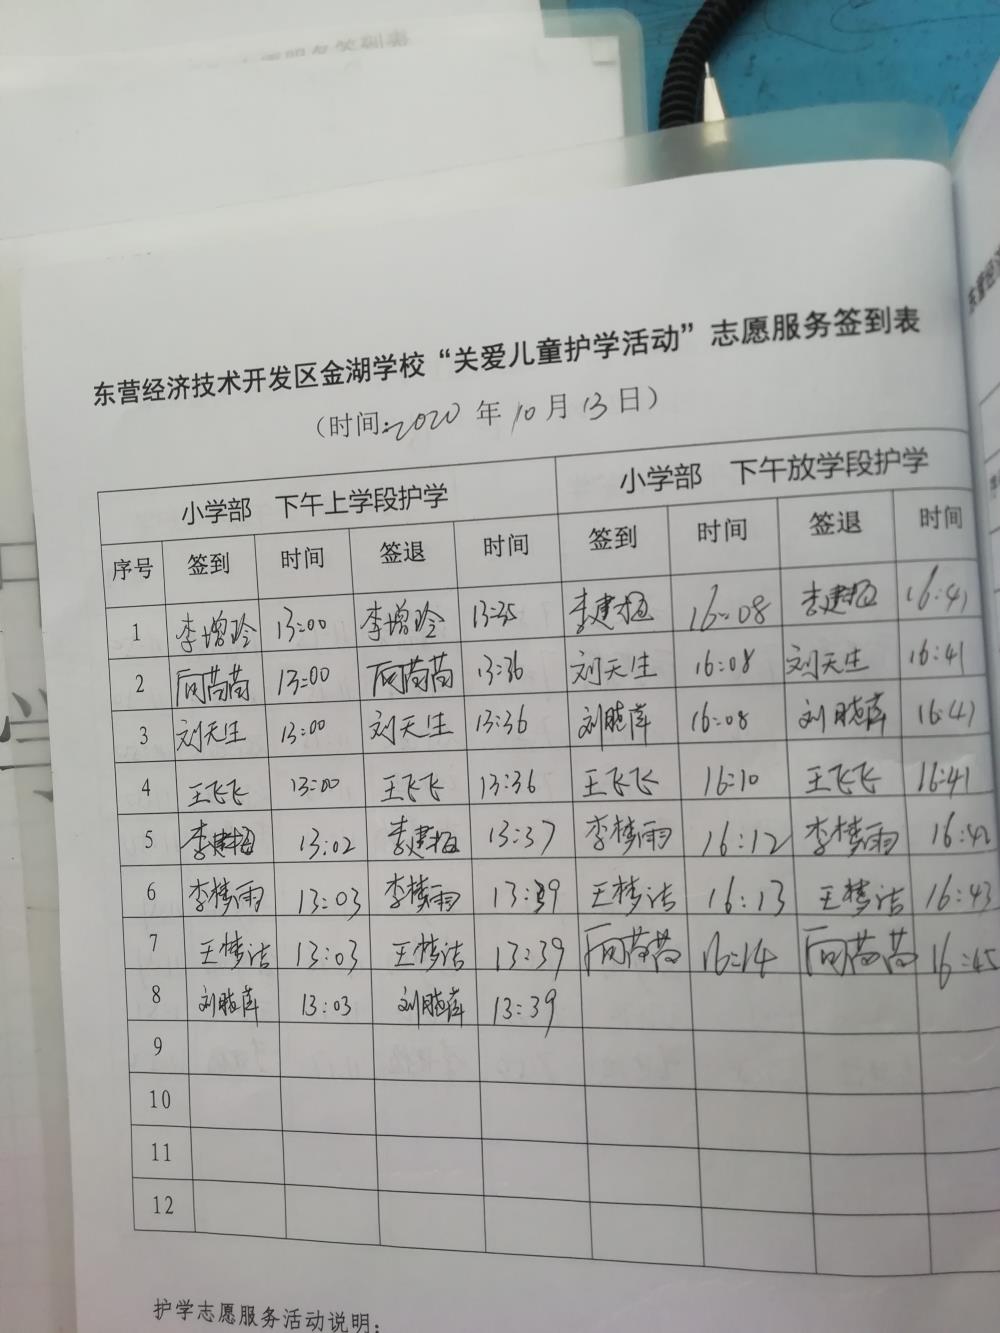 东营经济技术开发区金湖学校“关爱儿童护学活动”志愿服务签到表
（时间:2020年10月13日）
小学部 下午上学段护学 小学部 下午放学段护学
序号 签到 时间 签退 时间 签到 时间 签退 时间
1 李增玲 13:00 李增玲 13:35 李建梅 16:08 李建梅 16:41
2 13:00 13:36 刘天生 16:08 刘天生 16:41
3 刘天生 13:00 刘天生 13:36 刘晓萍 16:08 刘晓萍 16:41
4 王飞飞 13:00 王飞飞 13:36 王飞飞 16:10 王飞飞 16:41
5 李建梅 13:02 李建梅 13:37 李梦雨 16:12 李梦雨 16:42
6 李梦雨 13:03 李梦雨 13:39 王梦洁 16:13 王梦洁 16:43
7 王梦洁 13:03 王梦洁 13:39 16:14 16:45
8 刘晓萍 13:03 刘晓萍 13:39
9
10
11
12
护学志愿服务活动说明：